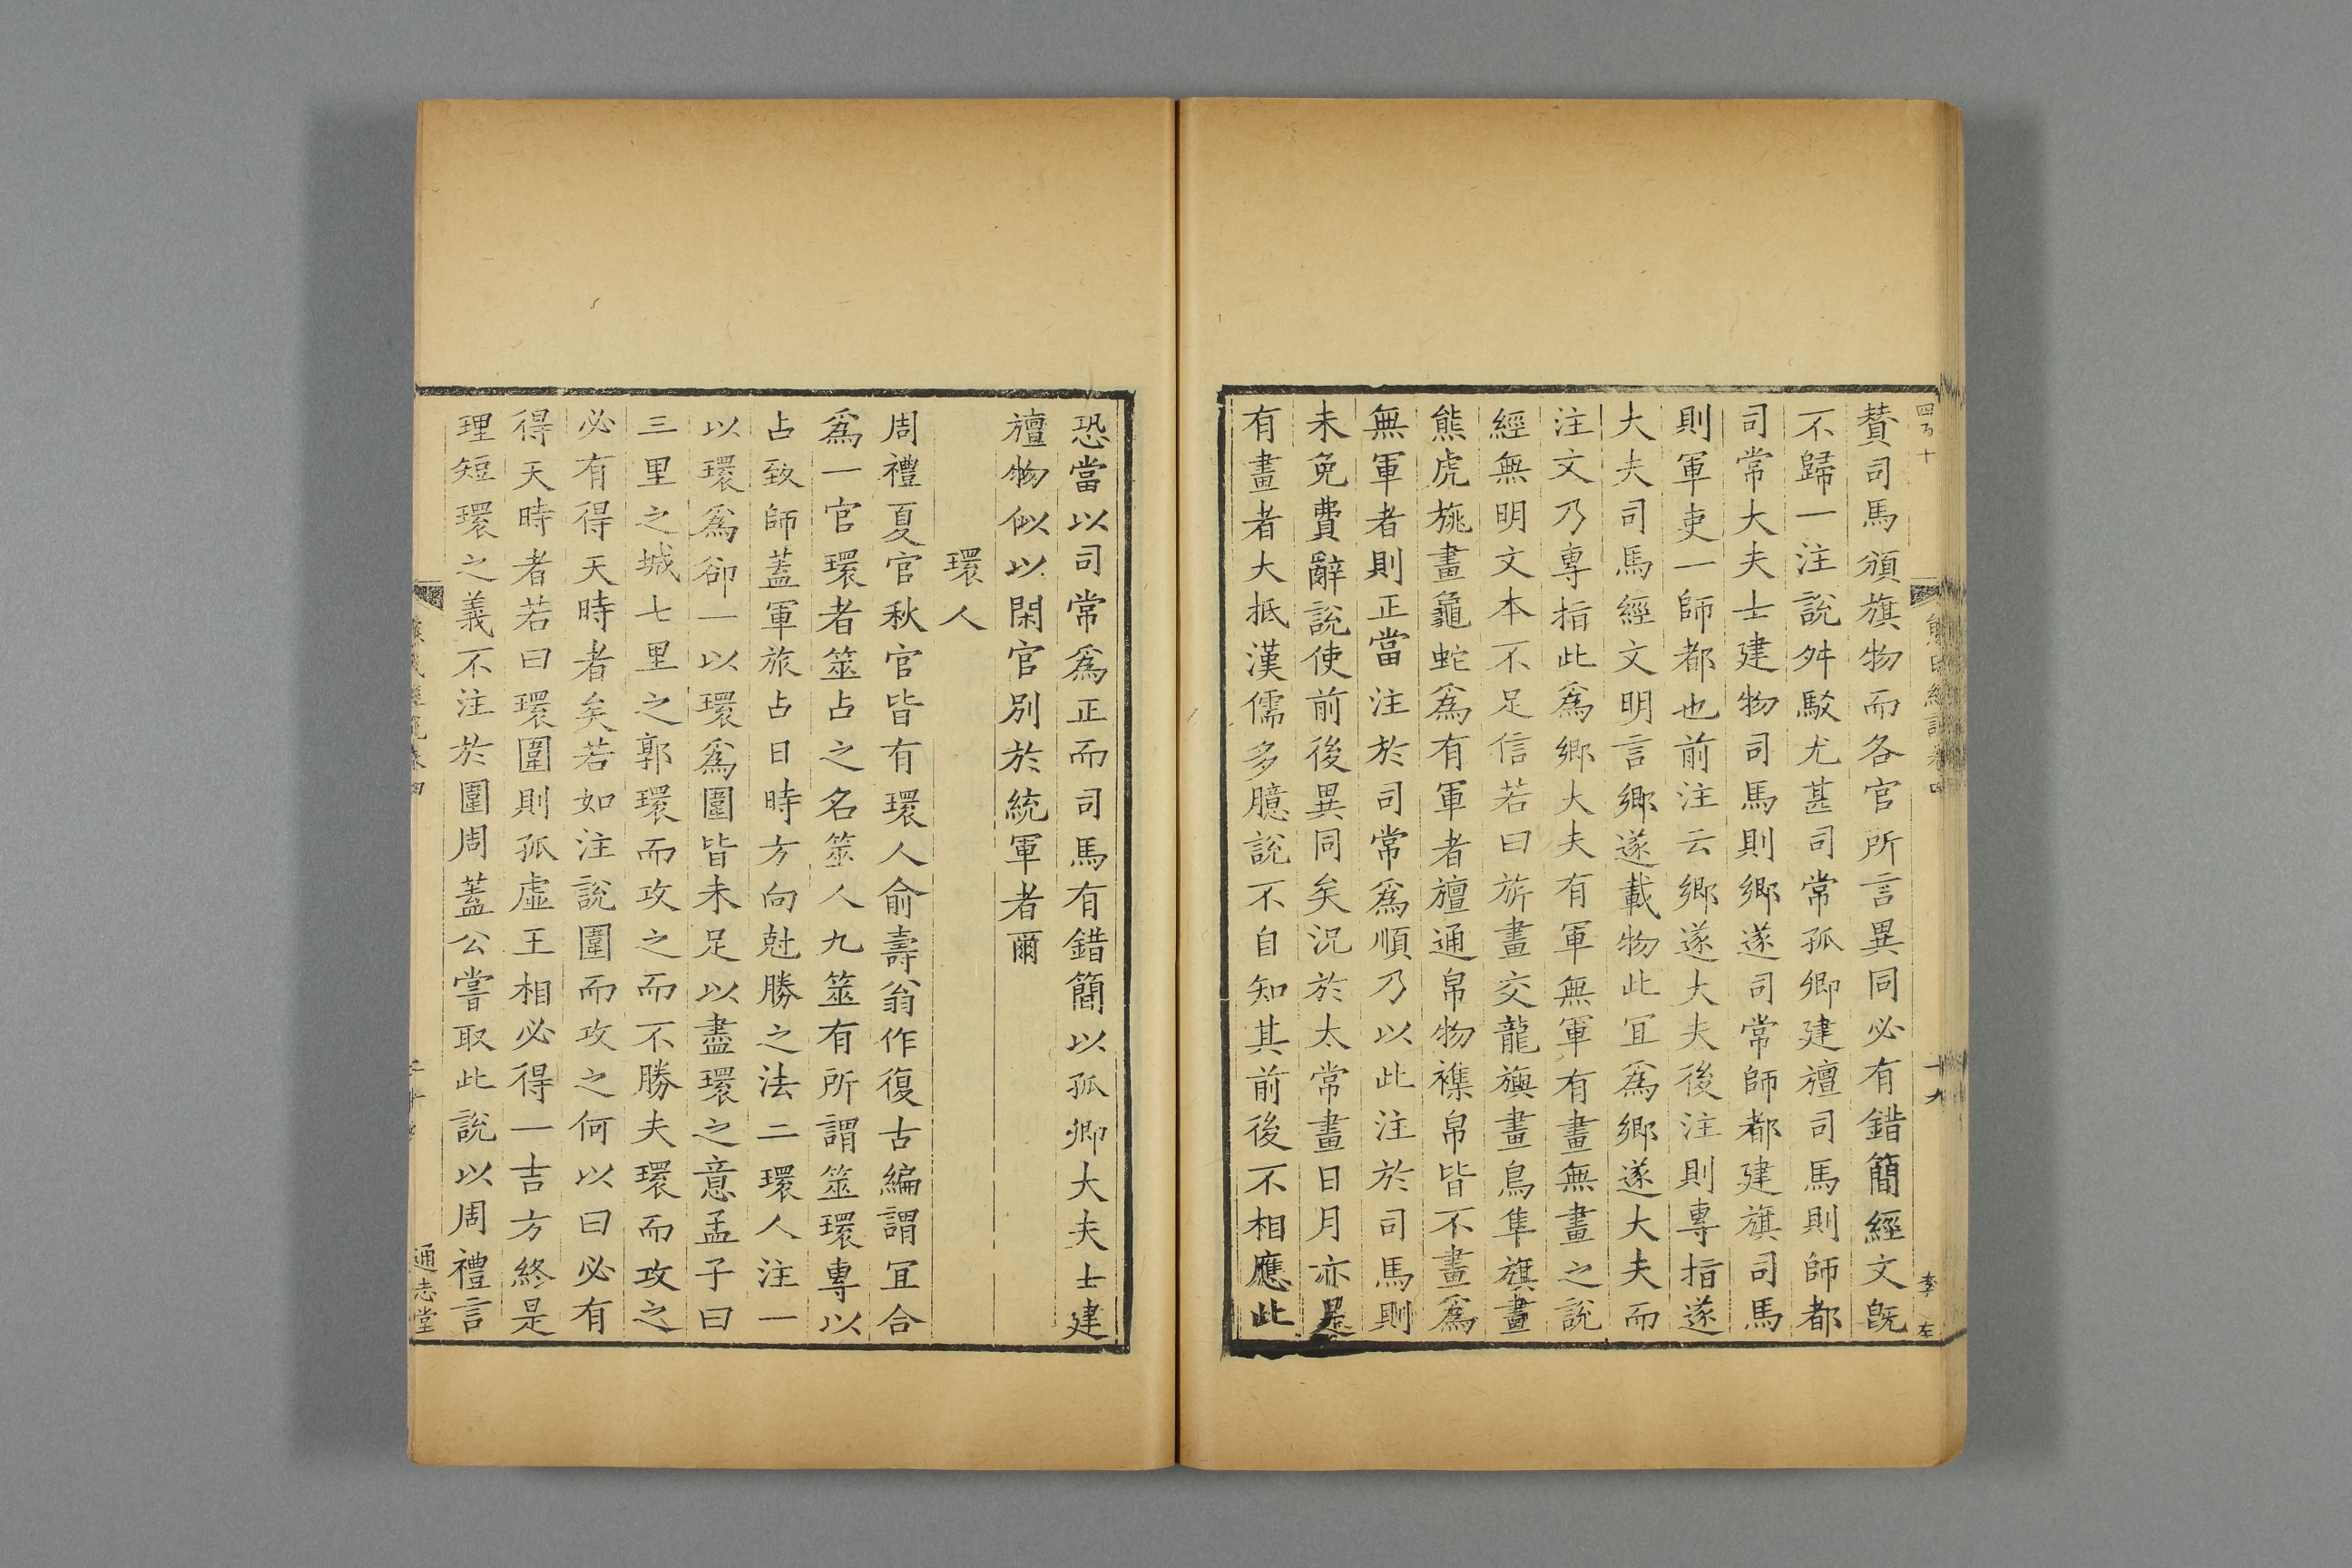 四百十
十九
李 左
贊司馬頒旗物而各官所言異同必有錯簡經文旣
不歸一注說舛駁尤甚司常孤卿建旜司馬則師都
司常大夫士建物司馬則鄉遂司常師都建旗司馬
則軍吏一師都也前注云鄉遂大夫後注則專指遂
大夫司馬經文明言鄉遂載物此冝爲鄉遂大夫而
注文乃專指此爲鄉大夫有軍無軍有畫無畫之說
經無明文本不足信若曰旂畫交龍旟畫鳥隼旗畫
熊虎旐畫龜蛇爲有軍者旜通帛物襍帛皆不畫爲
無軍者則正當注於司常爲順乃以此注於司馬則
未免費辭說使前後異同矣況於太常畫日月亦是
有畫者大抵漢儒多臆說不自知其前後不相應此
恐當以司常爲正而司馬有錯簡以孤卿大夫士建
旜物似以閑官別於統軍者爾
環人
周禮夏官秋官皆有環人俞壽翁作復古編謂冝合
爲一官環者筮占之名筮人九筮有所謂筮環專以
占致師蓋軍旅占日時方向尅勝之法二環人注一
以環爲卻一以環爲圍皆未足以盡環之意孟子曰
三里之城七里之郭環而攻之而不勝夫環而攻之
必有得天時者矣若如注說圍而攻之何以曰必有
得天時者若曰環圍則孤虛王相必得一吉方終是
理短環之義不注於圍周蓋公嘗取此說以周禮言
通志堂